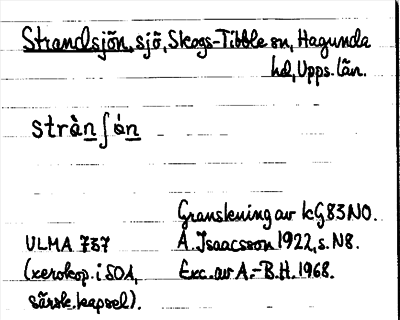 Strandsjön, sjö, Skogs-Tibble sn, Hagunda
hd, Upps. län.
strànʃón
Granskning av kG83NO.
ULMA 737 A. Isaacsson 1922, s. N8.
(xerokop. i SOA, Exc. av A.-B.H. 1968.
särsk. kapsel).